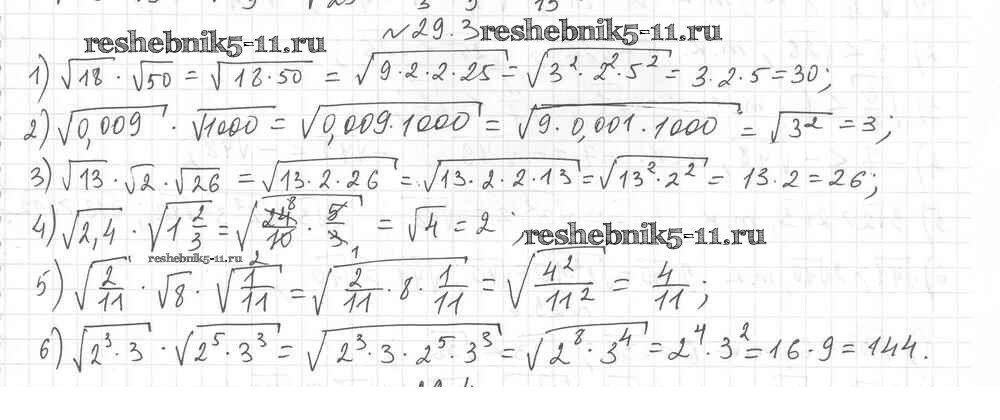 №29.3
reshebnik5-11.ru reshebnik5-11.ru
1) √18 · √50 = √(18·50) = √(9·2·2·25) = √(3²·2²·5²) = 3·2·5 = 30;
2) √0,009 · √1000 = √(0,009·1000) = √(9·0,001·1000) = √3² = 3;
3) √13 · √2 · √26 = √(13·2·26) = √(13·2·2·13) = √(13²·2²) = 13·2 = 26;
4) √2,4 · √(1 2/3) = √(24/10 · 5/3) = √4 = 2;
reshebnik5-11.ru
reshebnik5-11.ru
5) √(2/11) · √8 · √(1/11) = √(2/11 · 8 · 1/11) = √(4²/11²) = 4/11;
6) √(2³·3) · √(2⁵·3³) = √(2³·3·2⁵·3³) = √(2⁸·3⁴) = 2⁴·3² = 16·9 = 144.